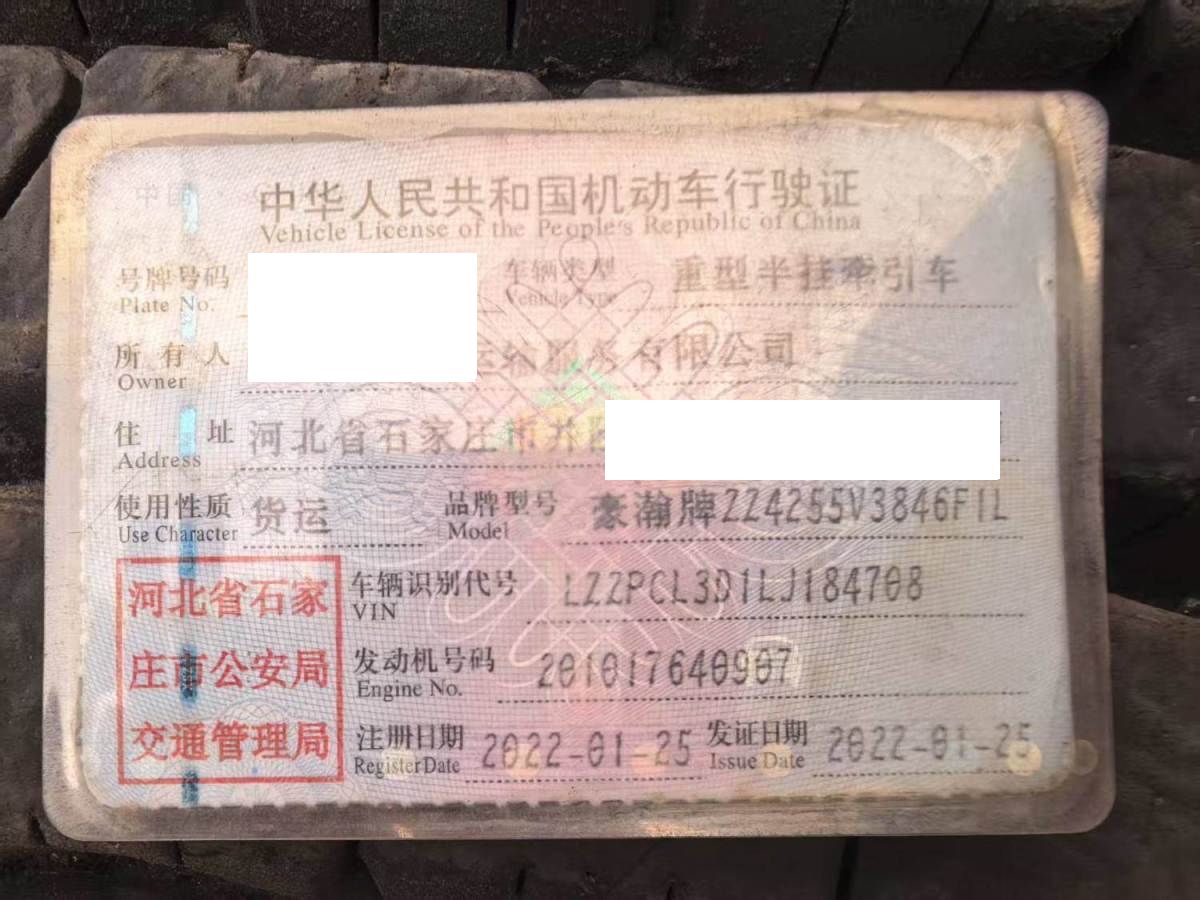 中华人民共和国机动车行驶证
Vehicle License of the People's Republic of China
号牌号码 车辆类型 重型半挂牵引车
Plate No. Vehicle Type
所有人 运输服务有限公司
Owner
住址 河北省石家庄市井
Address
使用性质 货运 品牌型号 豪瀚牌ZZ4255V3846F1L
Use Character Model
河北省石家
庄市公安局
交通管理局
车辆识别代号 LZZPCL3D1LJ184708
VIN
发动机号码 201017640907
Engine No.
注册日期 2022-01-25 发证日期 2022-01-25
Register Date Issue Date